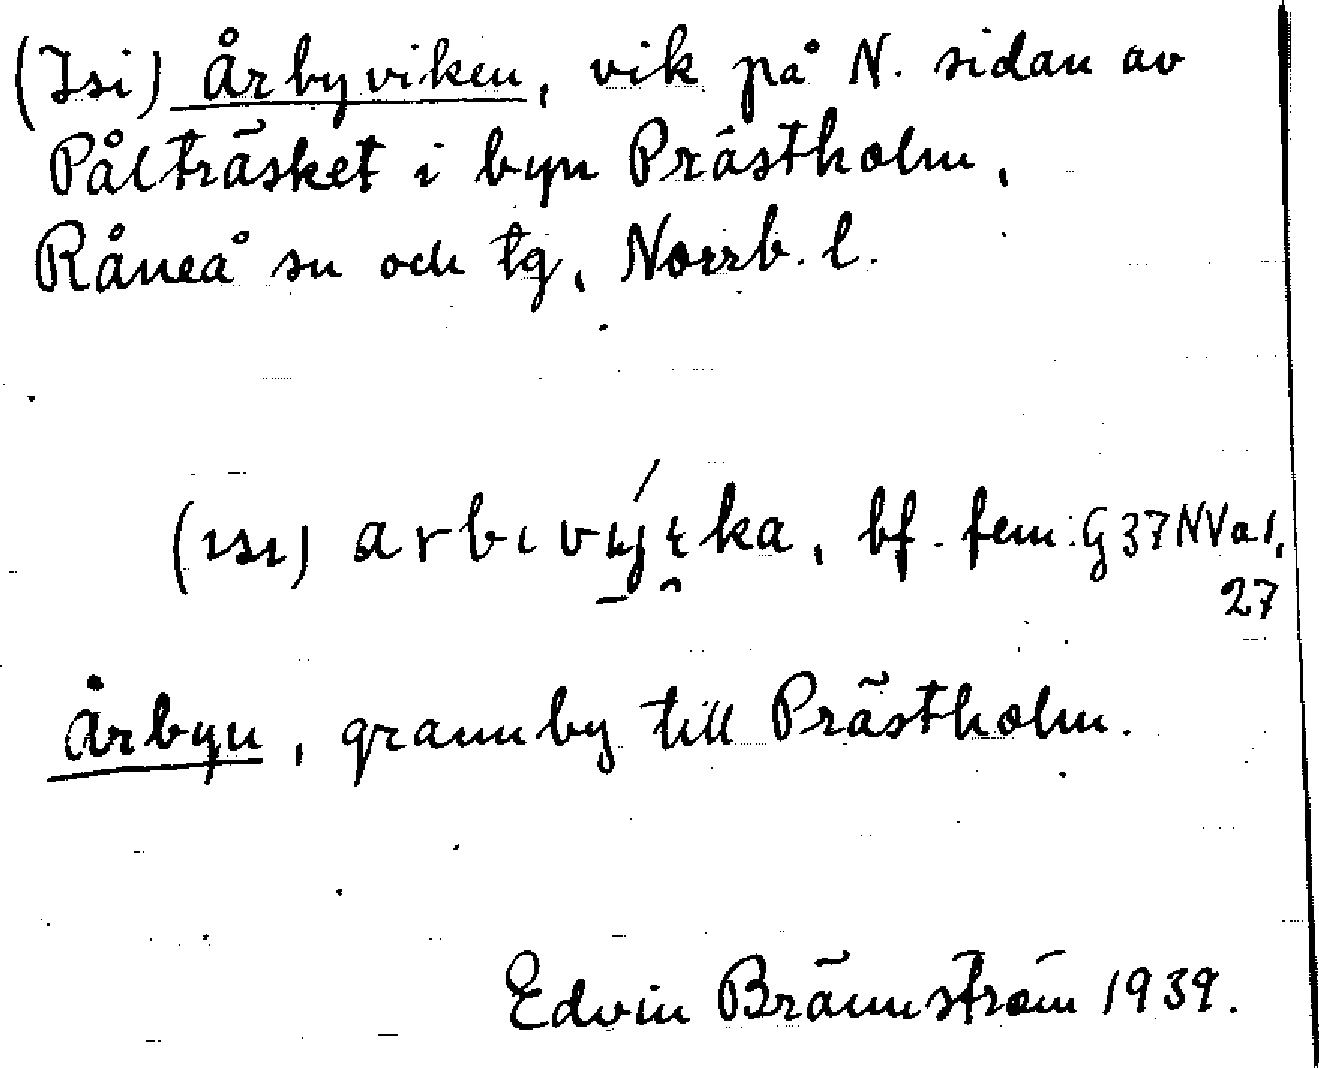 (Isi) Årbyviken, vik på N. sidan av
Pålträsket i byn Prästholm,
Råneå sn och tg, Norrb. l.
(ısı) arbı, bf. fem. G 37 NVa 1,
27
Årbyn, grannby till Prästholm.
Edvin Brännström 1939.